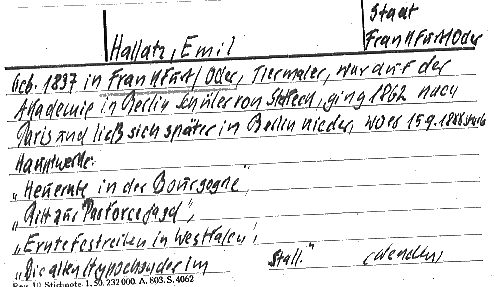 Staat
Hallatz, Emil
Frankfurt/Oder
Geb. 1837 in Frankfurt/Oder, Tiermaler, war auf der
Akademie in Berlin Schüler von Steffeck, ging 1862 nach
Paris und ließ sich später in Berlin nieder, wo er 15.9.1888 starb
Hauptwerke:
„Heuernte in der Bourgogne",
„Ritt zur Parforcejagd",
„Erntefestreiten in Westfalen",
„Die alten Hypochonder im Stall." (Wenden)
Stichnote. 1. 50. 232000. A. 803. S. 4062